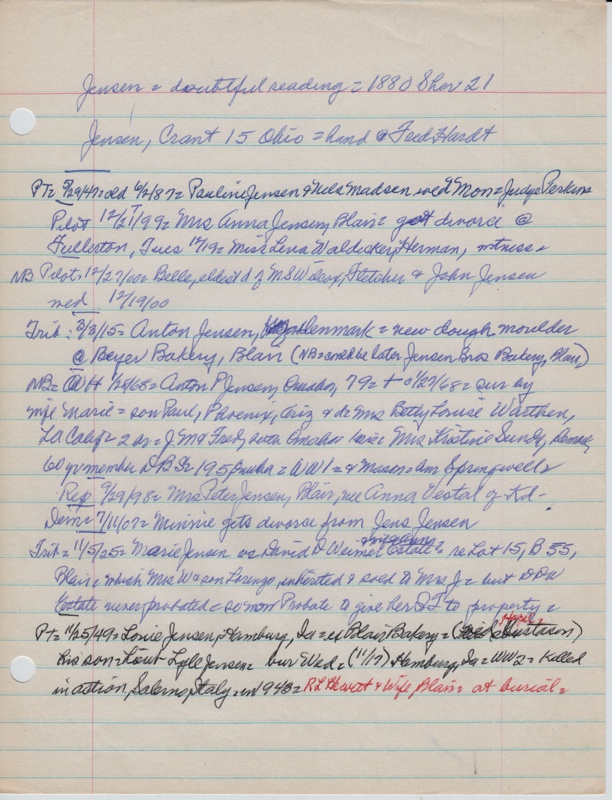 Jensen = doubtful reading = 1880 Sher 21
Jensen, Grant 15 Ohio = hand @ Fred Hardt
PT = 9/29/47 = old 6/2/87 = Pauline Jensen & Nels Madsen wed Mon = Judge Perkins
Pilot 12/21/99 = Mrs Anna Jensen, Blair = got divorce @
Fullerton, Tues 12/19 = Miss Lena Waldecker, Herman, witness =
NB Pilot, 12/27/00 = Belle, eldest d of M S Wilcox, Fletcher & John Jensen
wed 12/19/00
Trib: 3/3/15 = Anton Jensen, Denmark = new dough moulder
@ Beyer Bakery, Blair (NB = could be later Jensen Bros Bakery, Blair)
NB = = Anton P Jensen, Omaha, 79 = + 1/27/68 = sur by
wife Marie = son Paul, Phoenix, Ariz & da Mrs Betty Louise Warthen,
LA Calif = 2 br = J M & Fred, both Omaha = Mrs Kristine Sundy, Denmark,
60 yr member DB Omaha = WW1 = & Mason = Am Springwell
Rep 9/29/98 = Mrs Peter Jensen, Blair, nee Anna Vestal of Kd.
Dem: 7/11/07 = Minnie gets divorce from Jens Jensen
Trib = 11/5/25 = Marie Jensen vs David D Weimer Estate = re Lot 15, B 55,
Blair = which Mrs Wason Lorenzo, inherited & sold to Mrs J = but DDW
Estate never probated = so now Probate to give her to property =
PT = 11/25/49 = Louie Jensen, Hamburg, Ia = ex Blair Bakery = (Gustason)
his son = Lieut Lyle Jensen = bur Wed = (11/17) Hamburg, Ia = WW2 = Killed
in action, Salerno, Italy = in 1943 = R L Hewett & Wife, Blair = at burial =